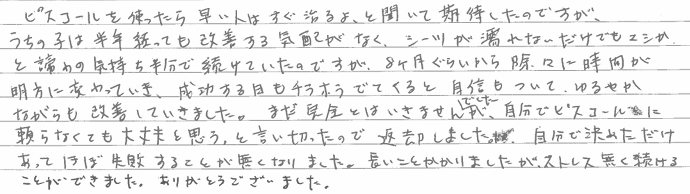 ピスコールを使ったら早い人はすぐ治るよ、と聞いて期待したのですが、
うちの子は半年経っても改善する気配がなく、シーツが濡れないだけでもマシか
と諦めの気持ち半分で続けていたのですが、8ヶ月ぐらいから除々に時間が
明方に変わっていき、成功する日もチラホラでてくると自信もついて、ゆるやか
ながらも改善していきました。まだ完全とはいきませんでしたが、自分でピスコールに
頼らなくても大丈夫と思う、と言い切ったので返却しました。自分で決めただけ
あってほぼ失敗することが無くなりました。長いことかかりましたが、ストレス無く続ける
ことができました。ありがとうございました。